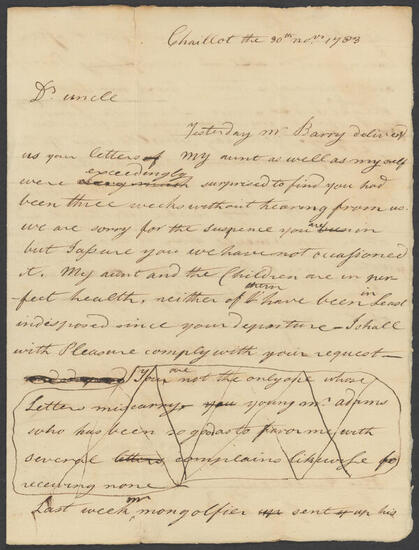 Chaillot the 30th novr 1783
Dr uncle
Yesterday mr Barry deliverd
us your letters of My aunt as well as my self
exceedingly
were very much surprised to find you had
been three weeks without hearing from us.
we are sorry for the suspence you are in
but I assure you we have not occasioned
it. My aunt and the Children are in per-
fect health, neither of them have been in Least
indisposed since your departure — I shall
with Pleasure comply with your request —
You are not the only one whose
Letters miscarry you young mr adams
who has been so good as to favor me with
several letters complains likewise of
receiving none —
Last week mr mongolfier sent up his